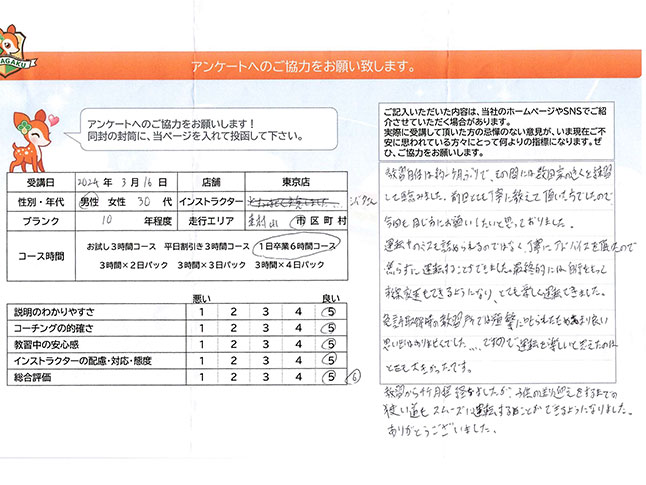 AGAKU
アンケートへのご協力をお願い致します。
アンケートへのご協力をお願いします！
同封の封筒に、当ページを入れて投函して下さい。
受講日 2024年 3月16日 店舗 東京店
性別・年代 男性 女性 30 代 インストラクター
ブランク 10 年程度 走行エリア 市区町村
コース時間 お試し3時間コース 平日割引き3時間コース 1日卒業6時間コース
3時間×2日パック 3時間×3日パック 3時間×4日パック
悪い 良い
説明のわかりやすさ 1 2 3 4 5
コーチングの的確さ 1 2 3 4 5
教習中の安心感 1 2 3 4 5
インストラクターの配慮・対応・態度 1 2 3 4 5
総合評価 1 2 3 4 5 6
ご記入いただいた内容は、当社のホームページやSNSでご紹
介させていただく場合があります。
実際に受講して頂いた方の忌憚のない意見が、いま現在ご不
安に思われている方々にとって何よりの指標になります。ぜ
ひ、ご協力をお願いします。
教習自体は約一ヶ月ぶりで、その間には数回家の
して臨みました。前回とても丁寧に教えて頂いた方でしたので
今回も同じ方にお願いしたいと思っておりました。
運転中のミスも詰められるのではなく、丁寧にアドバイスを頂けたので
焦らずに運転することができました。最終的には
車線変更もできるようになり、とても楽しく運転できました。
免許取得時の教習所では あまり良い
思い出がありませんでした...、ですので運転を楽しいと思えたのは
とても大きかったです。
教習から1ヶ月程経ちましたが、子供の送り迎えをするまでの
狭い道もスムーズに運転することができるようになりました。
ありがとうございました。